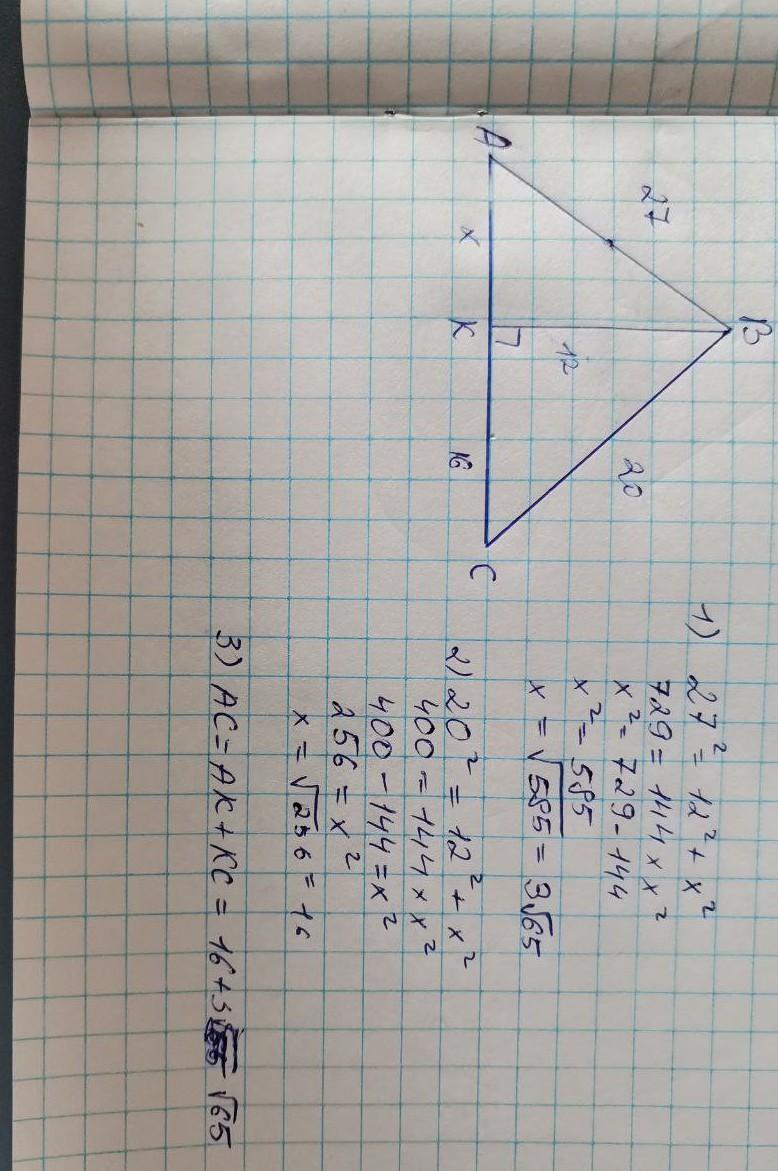 B
27
20
12
A
x
K
16
C
1) 27² = 12² + x²
729 = 144 + x²
x² = 729 - 144
x² = 585
x = √585 = 3√65
2) 20² = 12² + x²
400 = 144 + x²
400 - 144 = x²
256 = x²
x = √256 = 16
3) AC = AK + KC = 16 + 3 √65